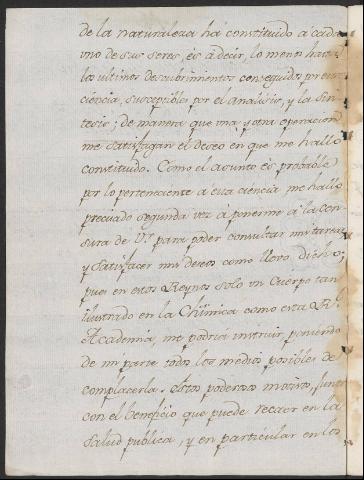 de la naturaleza há constituido á cada
uno de sus seres, és á decir, lo menos hasta
los ultimos descubrimientos conseguidos por esta
ciencia, susceptibles por el analisis, y la sin-
tesis; de manera que una y otra operacion
me satisfagan el deseo en que me hallo
constituido. Como el asunto es probable
por lo perteneciente á esta ciencia me hallo
precisado segunda vez á ponerme á la cen-
sura de V.s para poder consultar mis tareas
y satisfacer mis deseos como llevo dicho;
pues en estos Reynos solo un Cuerpo tan
ilustrado en la Chîmica como esta R.l
Academia, me podria instruir poniendo
de mi parte todos los medios posibles de
complacerla. Estos poderosos motivos, juntos
con el beneficio que puede recaer en la
salud publica, y en particular en los